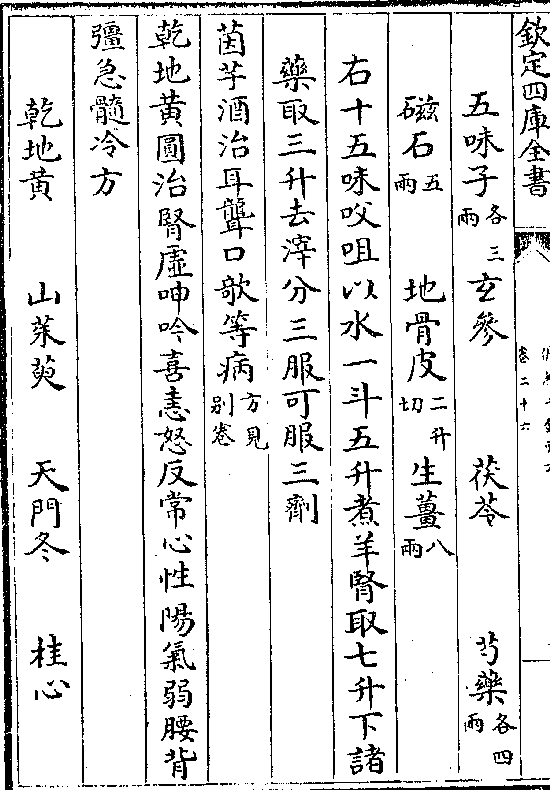 欽定四庫全書
卷二十六
五味子各三兩 玄參 茯苓 芍藥各四兩
磁石五兩 地骨皮二升切 生薑八兩
右十五味㕮咀以水一斗五升煮羊腎取七升下諸
藥取三升去滓分三服可服三劑
茵芋酒治耳聾口㖞等病方見别卷
乾地黃圓治腎虛呻吟喜恚怒反常心性陽氣弱腰背
彊急髓冷方
乾地黃 山茱萸 天門冬 桂心